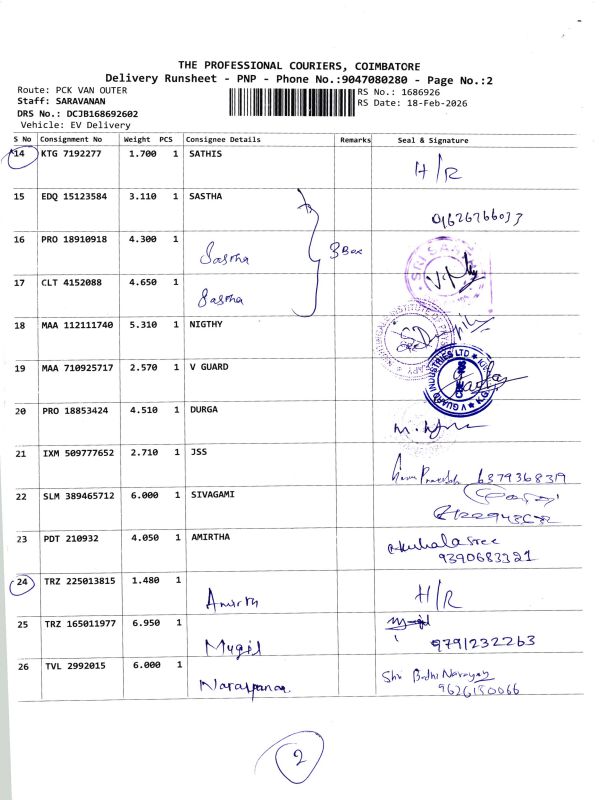 THE PROFESSIONAL COURIERS, COIMBATORE
Delivery Runsheet - PNP - Phone No.:9047080280 - Page No.:2
Route: PCK VAN OUTER RS No.: 1686926
Staff: SARAVANAN RS Date: 18-Feb-2026
DRS No.: DCJB168692602
Vehicle: EV Delivery
S No Consignment No Weight PCS Consignee Details Remarks Seal & Signature
14 KTG 7192277 1.700 1 SATHIS H/R
15 EDQ 15123584 3.110 1 SASTHA 9626766033
16 PRO 18910918 4.300 1 Sastha 3 Box
17 CLT 4152088 4.650 1 Sastha
18 MAA 112111740 5.310 1 NIGTHY
19 MAA 710925717 2.570 1 V GUARD V GUARD INDUSTRIES LTD
20 PRO 18853424 4.510 1 DURGA
21 IXM 509777652 2.710 1 JSS 6379368319
22 SLM 389465712 6.000 1 SIVAGAMI
23 PDT 210932 4.050 1 AMIRTHA
9390683321
24 TRZ 225013815 1.480 1 Amirth H/R
25 TRZ 165011977 6.950 1 Mugil 9791232263
26 TVL 2992015 6.000 1 Narayanan Shiv Bodhi Narayan
9626150066
2